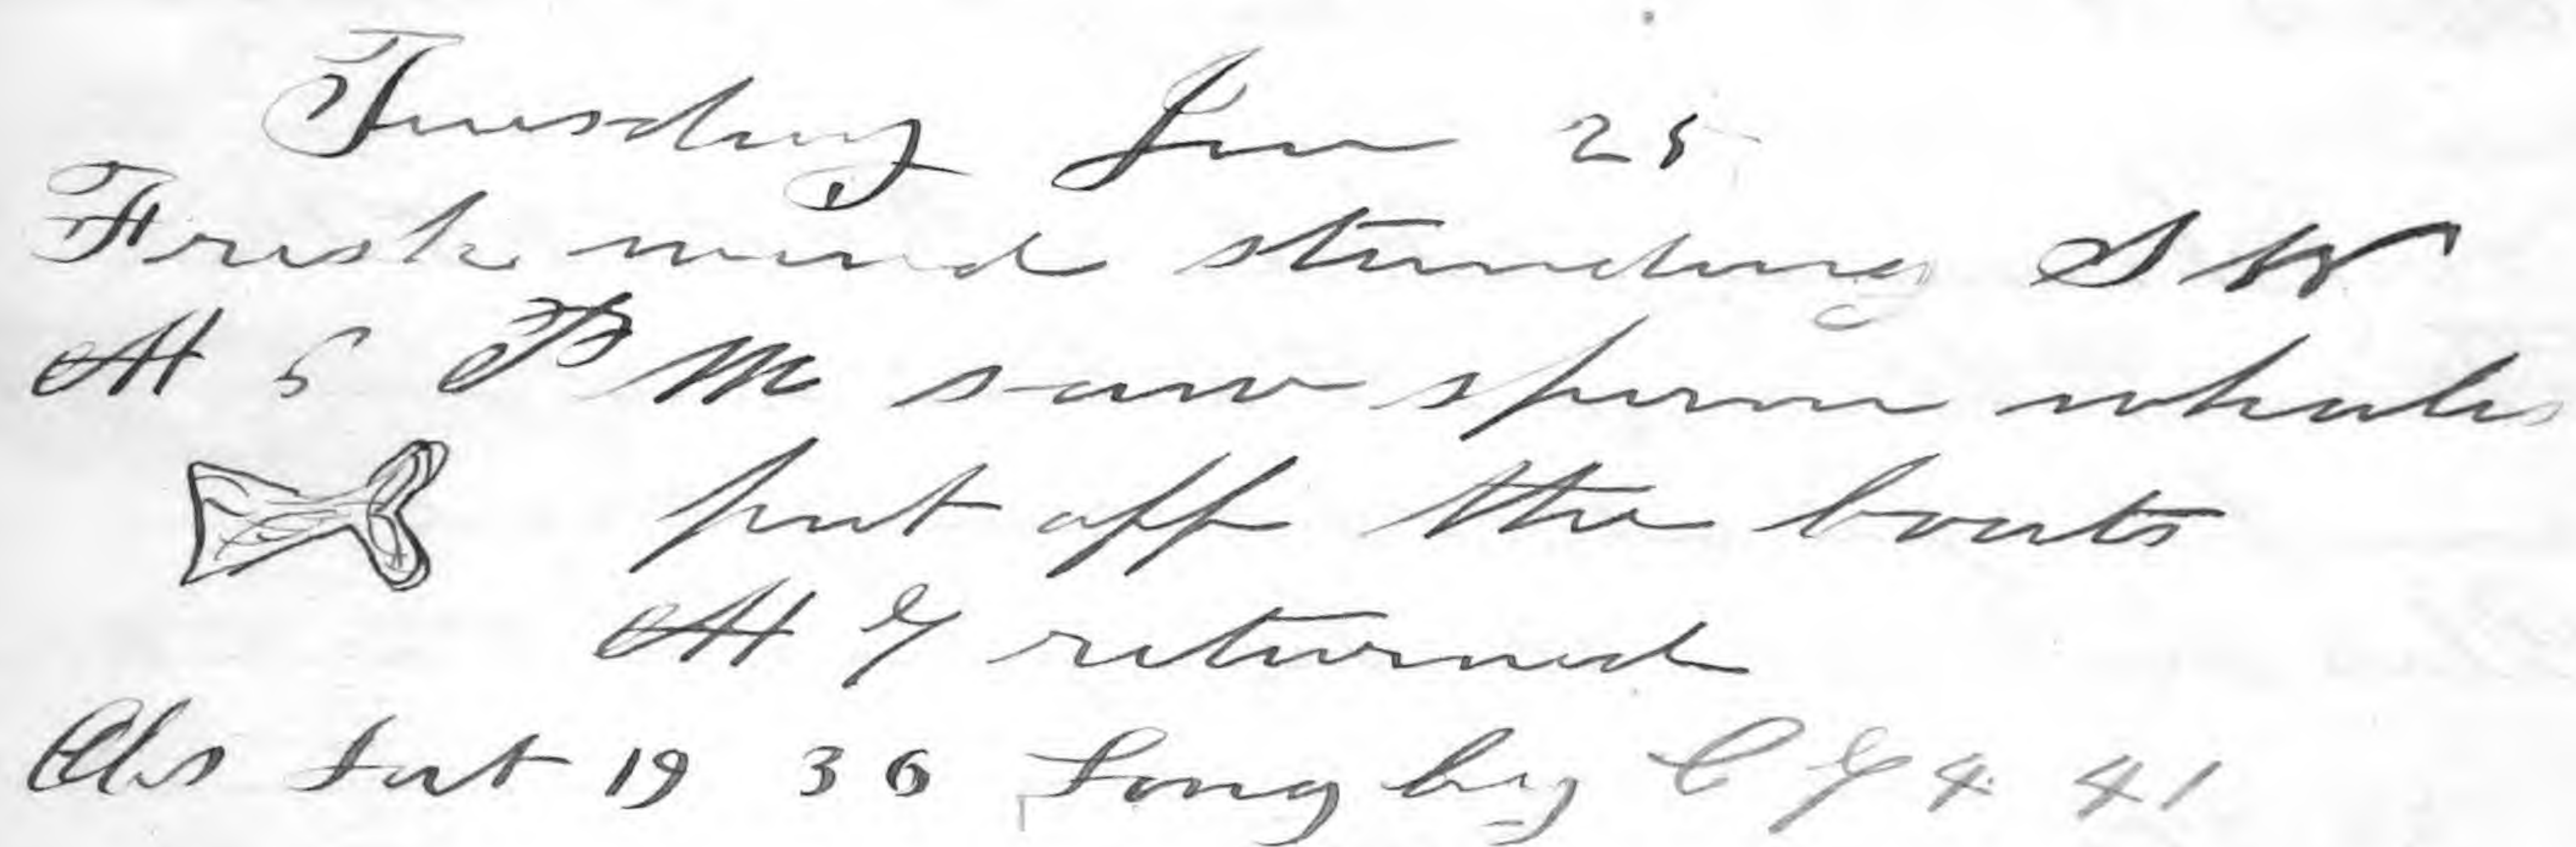 Tuesday Jan 25
Fresh wind standing S W
At 5 P M saw sperm whales
put off the boats
At 7 returned
Obs Lat 19 36 Long by C 74 41